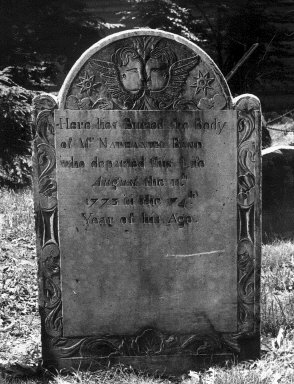 Here lies Buried the Body
of Mr. Nathaniel
who departed this Life
August the
1775 in the 74th
Year of his Age.